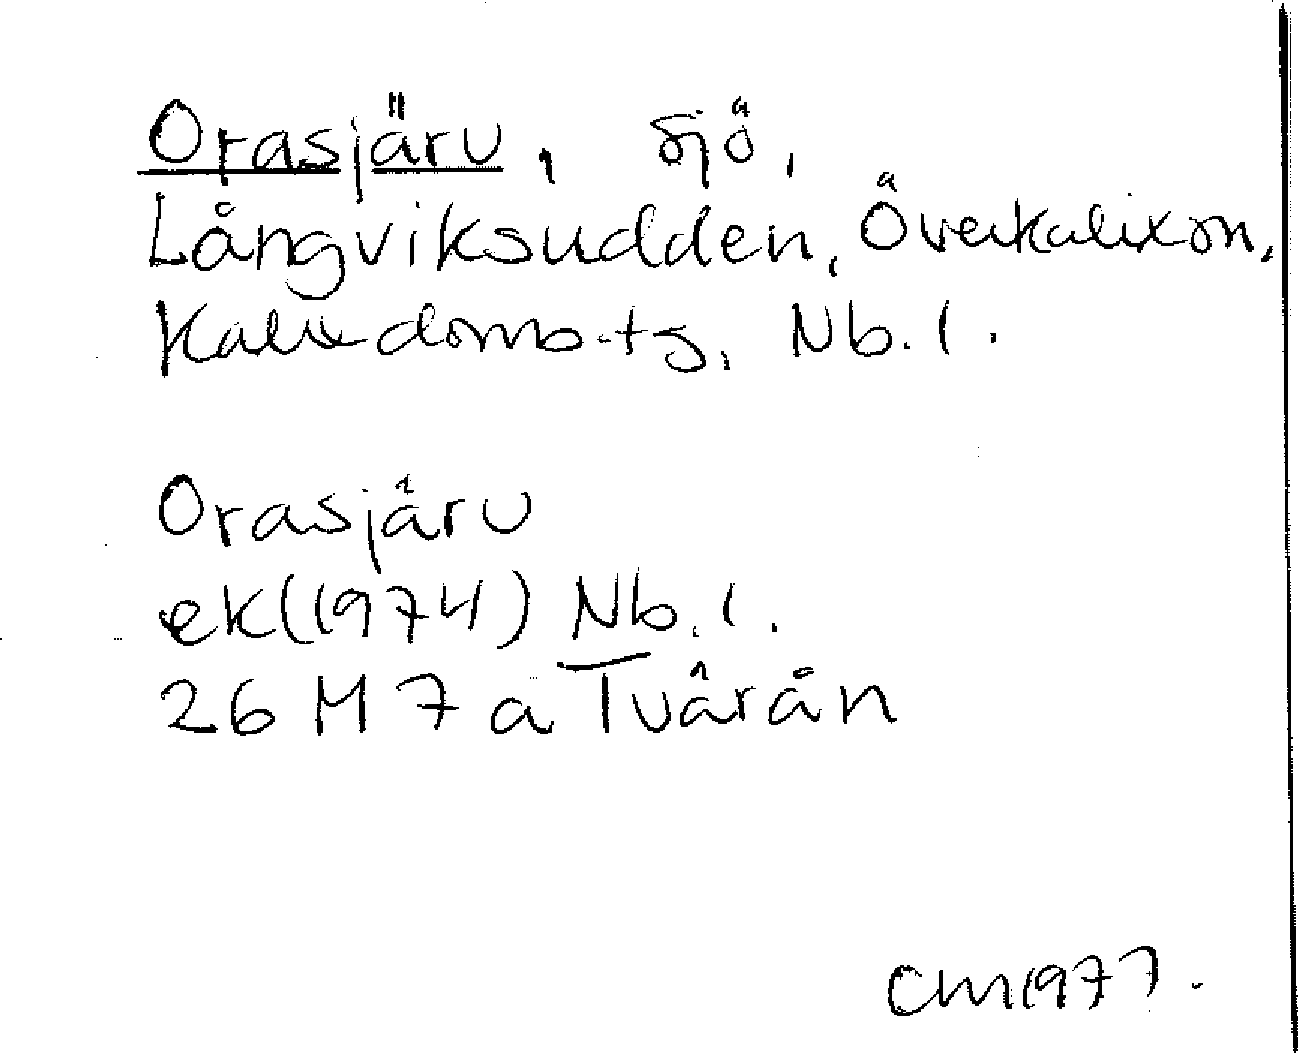 Orasjärv, sjö,
Långviksudden, Överkalix sn,
Kalix doms.tg, Nb. l.
Orasjärv
ek (1974) Nb. l.
26 M 7 a Tvärån
CM 1977.